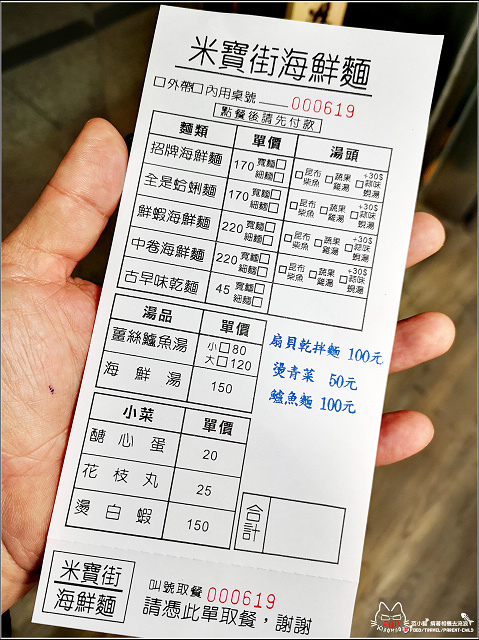 米寶街海鮮麵
□外帶□內用桌號 ____ 000619
點餐後請先付款
麵類 單價 湯頭
招牌海鮮麵 170 寬麵□ 細麵□ □昆布柴魚 □蔬果雞湯 +30$ □蒜味蜆湯
全是蛤蜊麵 170 寬麵□ 細麵□ □昆布柴魚 □蔬果雞湯 +30$ □蒜味蜆湯
鮮蝦海鮮麵 220 寬麵□ 細麵□ □昆布柴魚 □蔬果雞湯 +30$ □蒜味蜆湯
中卷海鮮麵 220 寬麵□ 細麵□ □昆布柴魚 □蔬果雞湯 +30$ □蒜味蜆湯
古早味乾麵 45 寬麵□ 細麵□
湯品 單價
薑絲鱸魚湯 小□80 大□120
海鮮湯 150
扇貝乾拌麵 100元
燙青菜 50元
鱸魚麵 100元
小菜 單價
醣心蛋 20
花枝丸 25
燙白蝦 150
合計
米寶街
海鮮麵
叫號取餐 000619
請憑此單取餐，謝謝
FOOD/TRAVEL/PARENT-CHILD